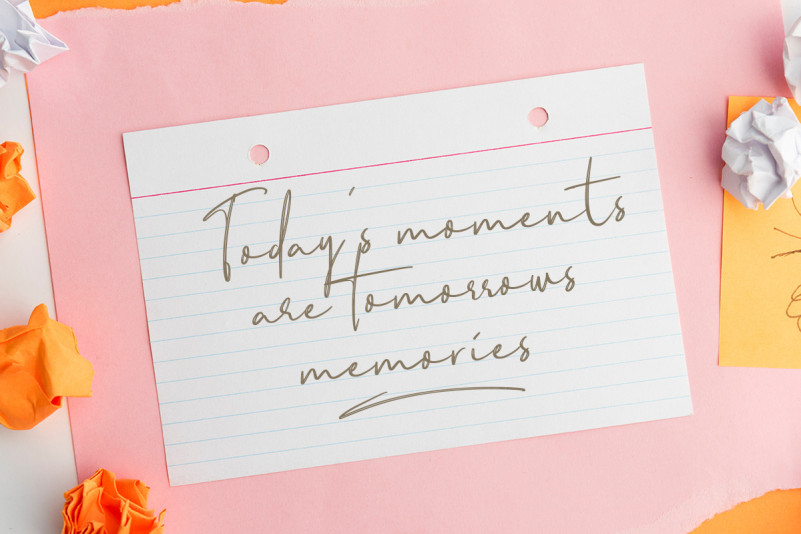 Today's moments
are tomorrows
memories